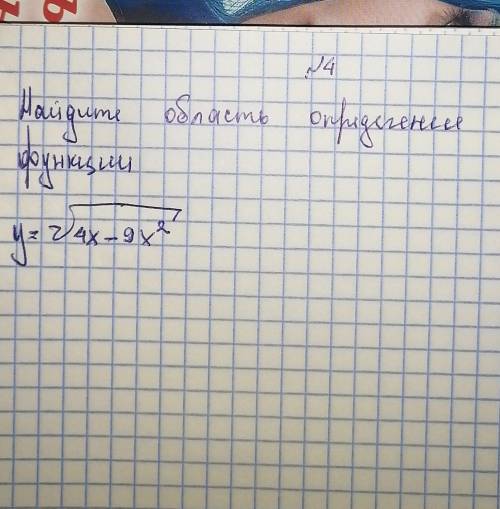 №4
Найдите область определение
функции
y = 2√4x - 9x²